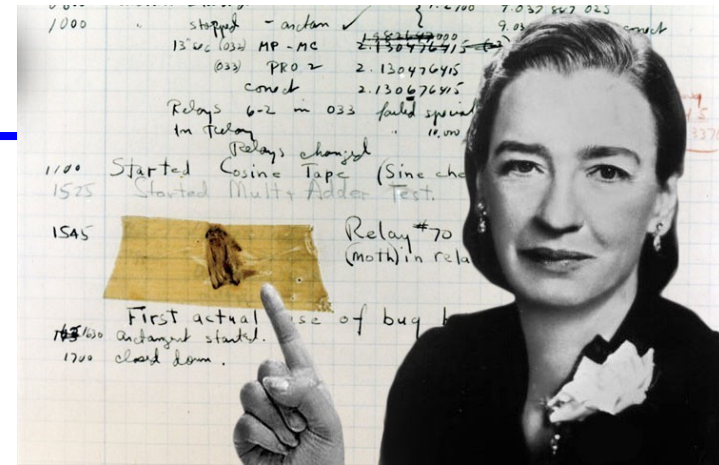 1000 " stopped - arctan ✓ 9.03 conect
13" uc (032) MP - MC 2.130476415
(033) PRO 2 2.130476415
conect 2.130676415
Relays 6-2 in 033 failed special
In Relay " 10,000
Relays changed
1100 Started Cosine Tape (Sine che
1525 Started Mult + Adder Test.
1545 Relay #70
(moth) in rela
First actual se of bug b
1630 arctangent started.
1700 closed down.